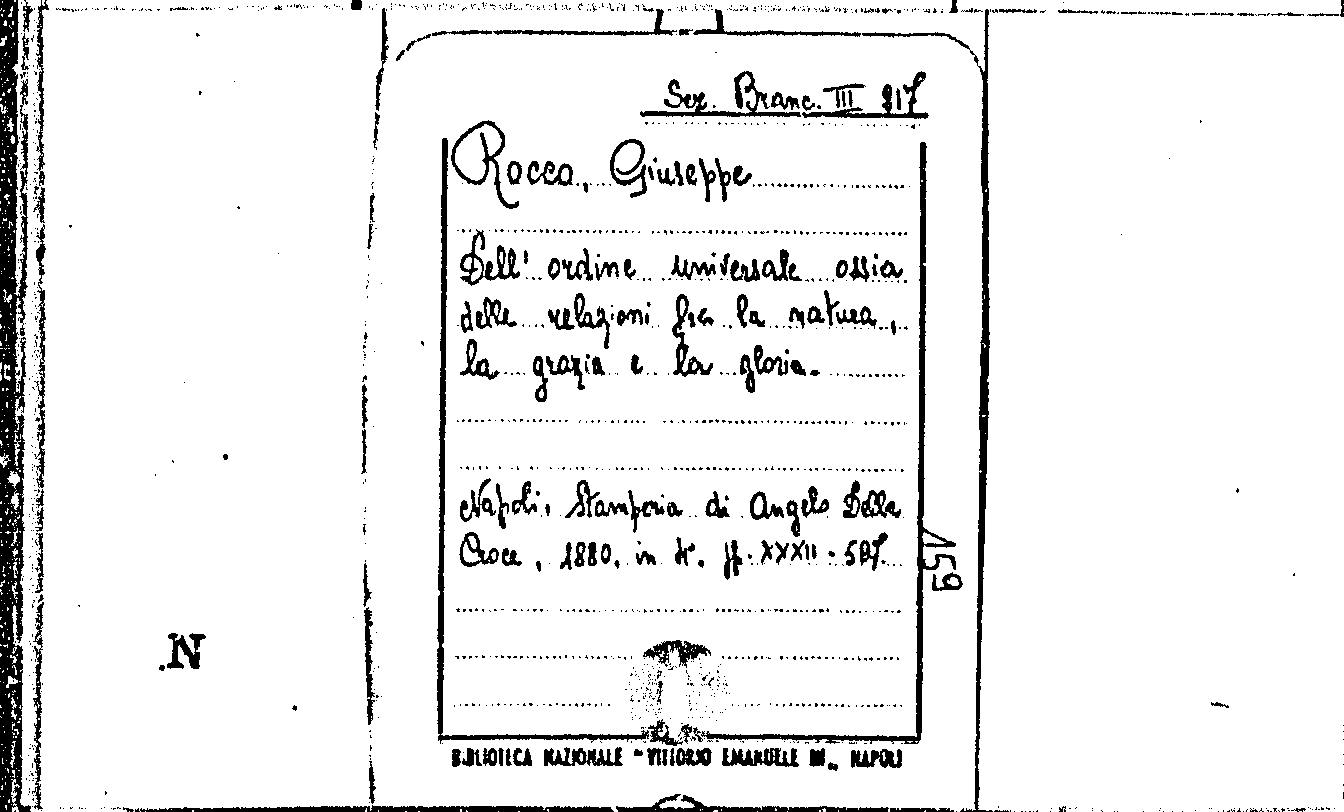 Sez. Branc. III 217
Rocco, Giuseppe
Dell' ordine universale ossia
delle relazioni fra la natura,
la grazia e la gloria.
Napoli, Stamperia di Angelo Della
Croce, 1880, in 4°. pp. XXXII - 507.
159
N
BIBLIOTECA NAZIONALE "VITTORIO EMANUELE III„ NAPOLI